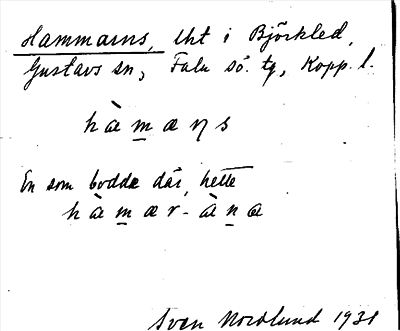 Hammarns, Uht i Björkled,
Gustavs sn, Falu sö. tg, Kopp. l.
hàm̲æηs
En som bodde där, hette
hàm̲ær-àn̲a
Sven Nordlund 1931